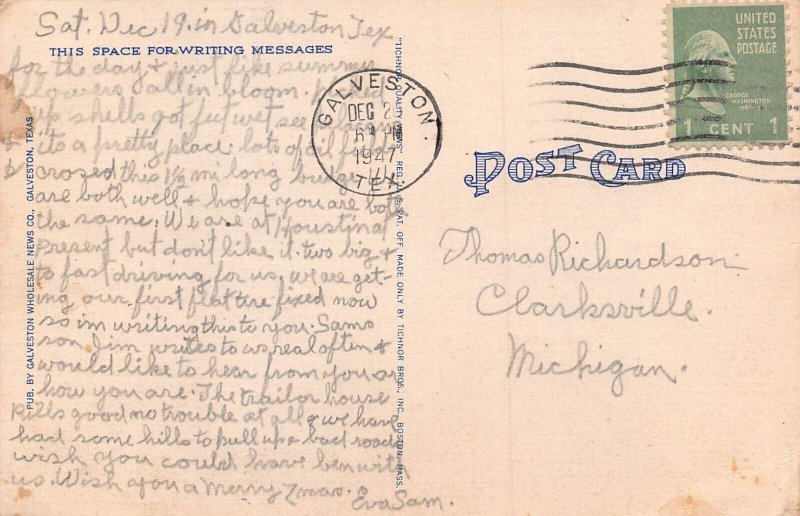 Sat. Dec 19. in Galveston Tex
THIS SPACE FOR WRITING MESSAGES
for the day & just like summer
flowers all in bloom. picked
up shells got fut wet see
its a pretty place. lots of oil
& crosed this 1½ mi long bridge
are both well & hope you are both
the same. We are at Houstin at
present but don't like it two big &
to fast driving for us, we are get-
ing our first flat tire fixed now
so im writing this to you. Sams
son Jim writes to us real often &
would like to hear from you as
how you are. The trailor house
good no trouble at all & we have
had some hills to pull up & bad roads
wish you could have ben with
us. Wish you a Merry Xmas.
Eva Sam.
PUB. BY GALVESTON WHOLESALE NEWS CO., GALVESTON, TEXAS
"TICHNOR QUALITY VIEWS" REG. U. S. PAT. OFF. MADE ONLY BY TICHNOR BROS., INC. BOSTON, MASS.
GALVESTON,
DEC 2
1947
TEX.
UNITED
STATES
POSTAGE
GEORGE
WASHINGTON
1 CENT 1
POST CARD
Thomas Richardson
Clarksville.
Michigan.